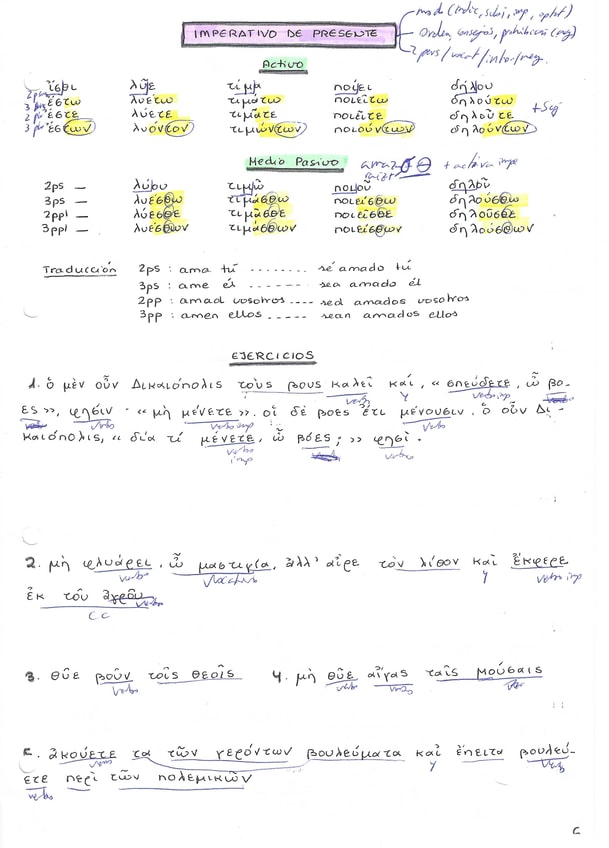 modo (indic, subj, imp, optat)
IMPERATIVO DE PRESENTE
Orden, consejos, prohibición (neg)
2 pers/vocat/inter/neg.
Activo
2ps ἴσθι λῦε τίμα ποίει δήλου
3ps ἔστω λυέτω τιμάτω ποιείτω δηλούτω
2pl ἔστε λύετε τιμᾶτε ποιεῖτε δηλοῦτε
3pl ἔστων λυόντον τιμώντων ποιούντων δηλούντων
Medio Pasivo + activa imp
2ps — λύου τιμῶ ποιοῦ δηλοῦ
3ps — λυέσθω τιμάσθω ποιείσθω δηλούσθω
2ppl — λύεσθε τιμᾶσθε ποιεῖσθε δηλοῦσθε
3ppl — λυέσθων τιμάσθων ποιείσθων δηλούσθων
Traducción 2ps : ama tú ........ sé amado tú
3ps : ame él ........ sea amado él
2pp : amad vosotros .... sed amados vosotros
3pp : amen ellos ....... sean amados ellos
EJERCICIOS
1. ὁ μὲν οὖν Δικαιόπολις τοὺς βους καλεῖ καί, « σπεύδετε, ὦ βο-
verbo y verbo imp
ες », φησιν · « μὴ μένετε ». οἱ δὲ βοες ἔτι μένουσιν. ὁ οὖν Δι-
verbo verbo imp verbo
καιόπολις, « δία τί μένετε, ὦ βόες ; » φησὶ.
verbo imp verbo
2. μὴ φλυάρει, ὦ μαστιγία, ἀλλ' αἶρε τὸν λίθον καὶ ἔκφερε
verbo vocativo y verbo imp
ἐκ τοῦ ἀγροῦ
CC
3. θῦε βοῦν τοῖς θεοῖς 4. μὴ θῦε αἶγας ταῖς μούσαις
verbo verbo
5. ἀκούετε τα τῶν γερόντων βουλεύματα καὶ ἔπειτα βουλεύ-
verbo y verbo
ετε περὶ τῶν πολεμικῶν
verbo